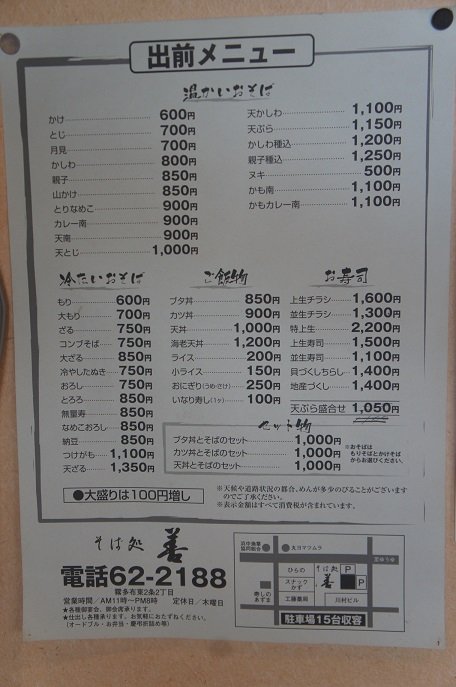 出前メニュー
温かいおそば
かけ 600円
とじ 700円
月見 700円
かしわ 800円
親子 850円
山かけ 850円
とりなめこ 900円
カレー南 900円
天南 900円
天とじ 1,000円
天かしわ 1,100円
天ぷら 1,150円
かしわ種込 1,200円
親子種込 1,250円
ヌキ 500円
かも南 1,100円
かもカレー南 1,100円
冷たいおそば
もり 600円
大もり 700円
ざる 750円
コンブそば 750円
大ざる 850円
冷やしたぬき 750円
おろし 750円
とろろ 850円
無量寿 850円
なめこおろし 850円
納豆 850円
つけがも 1,100円
天ざる 1,350円
ご飯物
ブタ丼 850円
カツ丼 900円
天丼 1,000円
海老天丼 1,200円
ライス 200円
小ライス 150円
おにぎり(うめ・さけ) 250円
いなり寿し(1ヶ) 100円
お寿司
上生チラシ 1,600円
並生チラシ 1,300円
特上生 2,200円
上生寿司 1,500円
並生寿司 1,100円
貝づくしちらし 1,400円
地産づくし 1,400円
天ぷら盛合せ 1,050円
セット物
ブタ丼とそばのセット 1,000円
カツ丼とそばのセット 1,000円
天丼とそばのセット 1,000円
※おそばは
もりそばとかけそば
からお選びください。
●大盛りは100円増し
※天候や道路状況の都合、めんが多少のびることがございます
のでご了承ください。
※表示金額はすべて消費税が含まれています。
そば処 善
電話62-2188
霧多布東2条2丁目
営業時間/AM11時〜PM8時 定休日/木曜日
★各種御宴会、御会席承ります。
★仕出し各種承ります、お気軽におたずねください。
(オードブル・お弁当・慶弔折詰め等)
浜中漁業
協同組合
丸ヨマツムラ
至ゆうゆ
寿しの
あずま
ひらの
スナック
かず
工藤薬局
そば処
善
P
P
川村ビル
駐車場15台収容